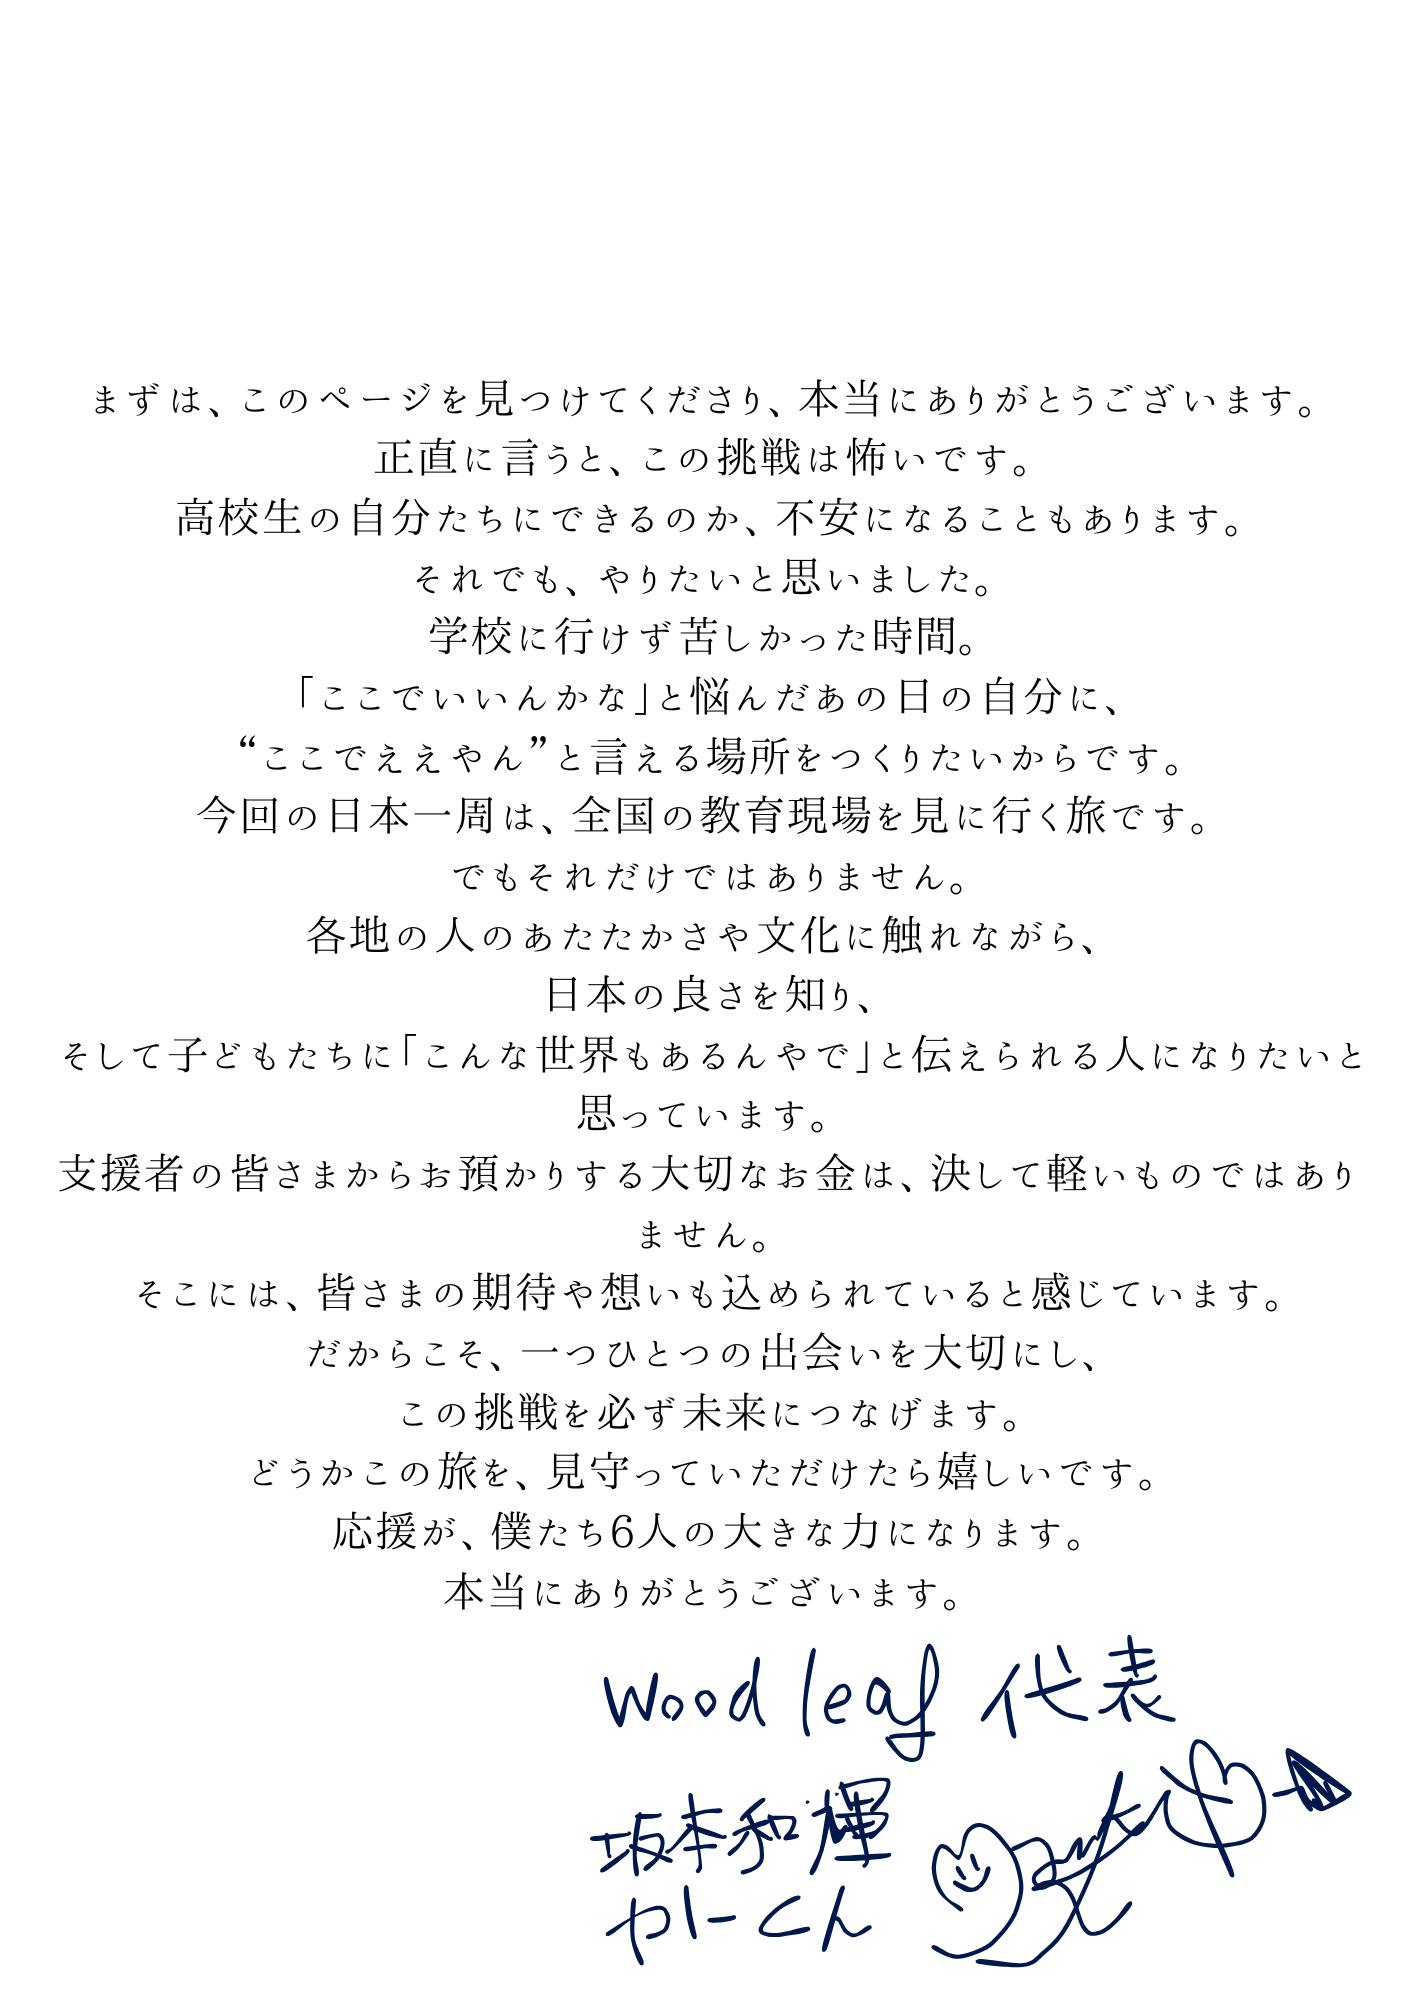 まずは、このページを見つけてくださり、本当にありがとうございます。
正直に言うと、この挑戦は怖いです。
高校生の自分たちにできるのか、不安になることもあります。
それでも、やりたいと思いました。
学校に行けず苦しかった時間。
「ここでいいんかな」と悩んだあの日の自分に、
“ここでええやん”と言える場所をつくりたいからです。
今回の日本一周は、全国の教育現場を見に行く旅です。
でもそれだけではありません。
各地の人のあたたかさや文化に触れながら、
日本の良さを知り、
そして子どもたちに「こんな世界もあるんやで」と伝えられる人になりたいと
思っています。
支援者の皆さまからお預かりする大切なお金は、決して軽いものではあり
ません。
そこには、皆さまの期待や想いも込められていると感じています。
だからこそ、一つひとつの出会いを大切にし、
この挑戦を必ず未来につなげます。
どうかこの旅を、見守っていただけたら嬉しいです。
応援が、僕たち6人の大きな力になります。
本当にありがとうございます。
Wood leaf 代表
坂本和輝